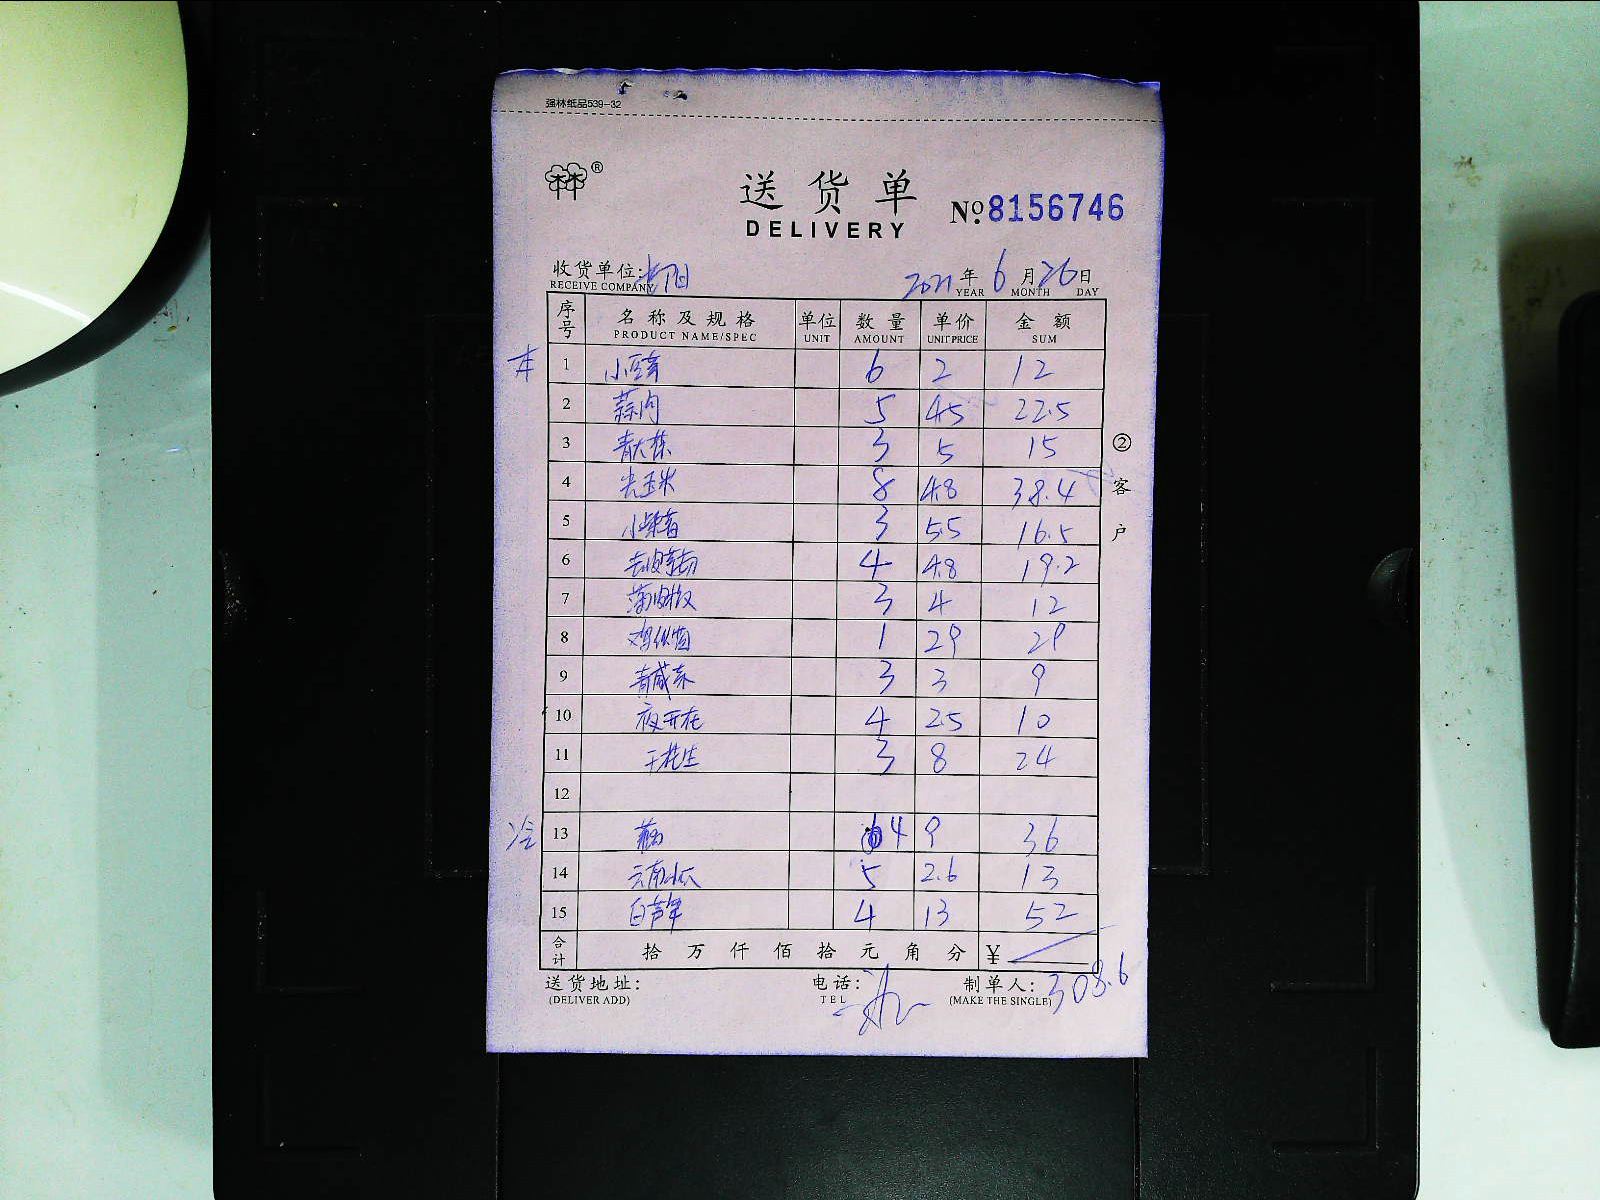 强林纸品539-32
®
送货单
DELIVERY
№ 8156746
收货单位: 2021年6月26日
RECEIVE COMPANY YEAR MONTH DAY
序号 名称及规格 单位 数量 单价 金额
PRODUCT NAME/SPEC UNIT AMOUNT UNIT PRICE SUM
1 小豆芽 6 2 12
2 蒜肉 5 4.5 22.5
3 3 5 15
4 玉米 8 4.8 38.4
5 小 3 5.5 16.5
6 去皮 4 4.8 19.2
7 3 4 12
8 1 29 29
9 3 3 9
10 夜开花 4 2.5 10
11 干花生 3 8 24
12
13 4 9 36
14 云南小瓜 5 2.6 13
15 白 4 13 52
合计 拾万仟佰拾元角分 ¥
308.6
送货地址: 电话: 制单人:
(DELIVER ADD) TEL (MAKE THE SINGLE)
②客户